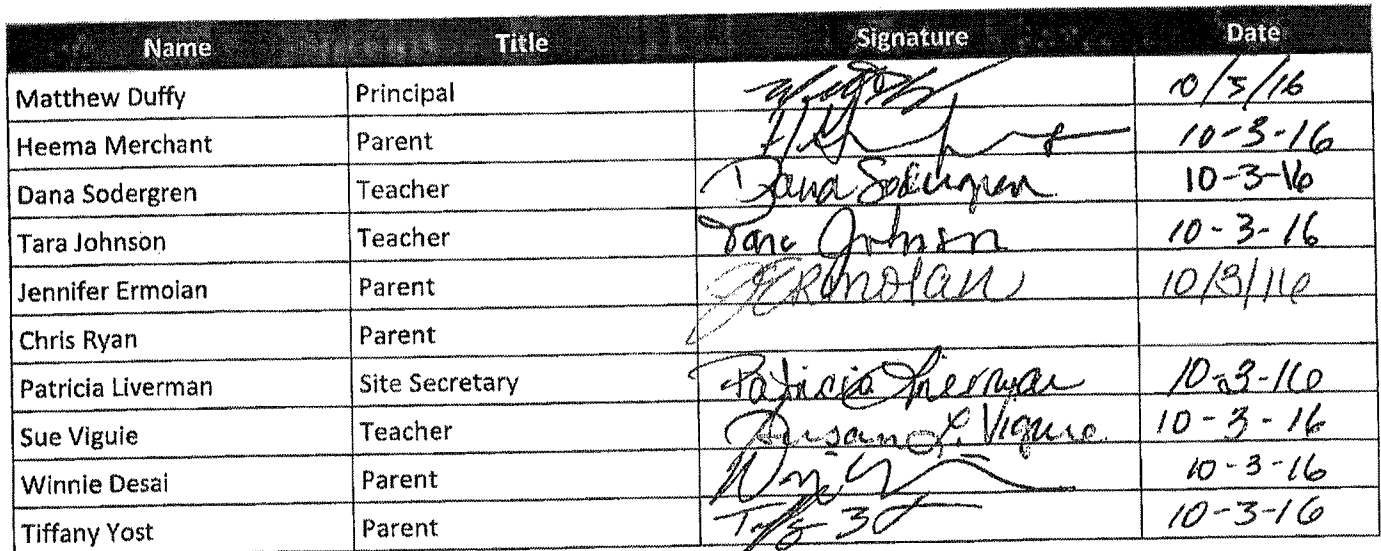 Name Title Signature Date
Matthew Duffy Principal 10/5/16
Heema Merchant Parent 10-3-16
Dana Sodergren Teacher Dana Sodergren 10-3-16
Tara Johnson Teacher Tara Johnson 10-3-16
Jennifer Ermolan Parent JErmolan 10/3/16
Chris Ryan Parent
Patricia Liverman Site Secretary Patricia Liverman 10-3-16
Sue Viguie Teacher Susan L. Viguie 10-3-16
Winnie Desai Parent 10-3-16
Tiffany Yost Parent 10-3-16